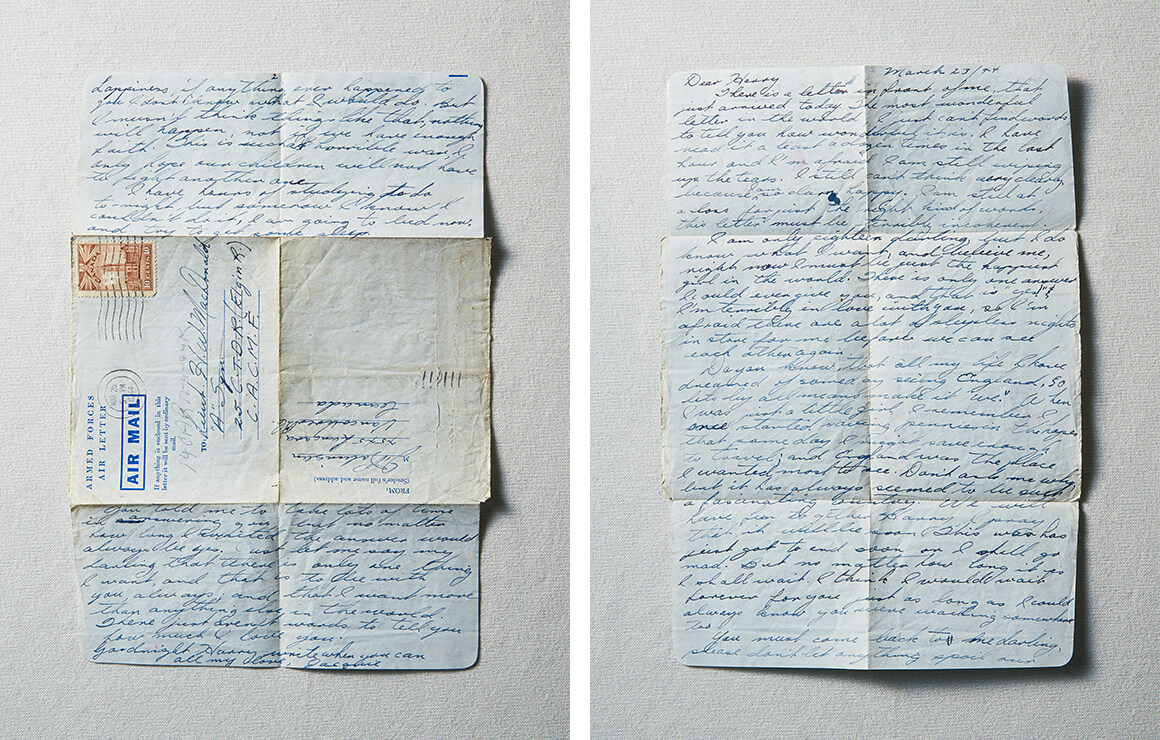 2
happiness, if anything ever happened to
you I don't know what I would do. But
I mustn't think things like that, nothing
will happen, not if we have enough
faith. This is such a horrible war, I
only hope our children will not have
to fight another one.
I have hours of studying to do
to-night but somehow I know I
couldn't do it, I am going to bed now
and try to get some sleep.
CANADA
10 CENTS 10
ARMED FORCES
AIR LETTER
AIR MAIL
If anything is enclosed in this
letter it will be sent by ordinary
mail.
TO:
Lieut H. W. MacDonald
A Sqn
25 C.T.D.R. (Elgin R.)
C.A.C.M.F.
FROM:
(Sender's full name and address)
Vancouver
Canada
You told me to take lots of time
in answering you, but no matter
how long I waited the answer would
always be yes. Just let me say my
darling that there is only one thing
I want, and that is to be with
you always, and that I want more
than anything else in the world.
There just aren't words to tell you
how much I love you.
Goodnight Harry, write when you can
all my love Jacquie
March 23/44
Dear Harry
There is a letter in front of me, that
just arrived today. The most wonderful
letter in the world. I just cant find words
to tell you how wonderful it is. I have
read it a least a dozen times in the last
hour and I'm afraid I am still wiping
up the tears. I still can't think very clearly,
because I am so darn happy. I am still at
a loss for just the right kind of words,
this letter must be terribly incoherent.
I am only eighteen darling, but I do
know what I want, and believe me,
right now I must be just the happiest
girl in the world. There is only one answer
I could ever give you, and that is "yes"!
I'm terribly in love with you, so I'm
afraid there are a lot of sleepless nights
in store for me before we can see
each other again.
Do you know, that all my life I have
dreamed of someday seeing England, so
lets by all means make it "we". When
I was just a little girl, I remember I
once started saving pennies in the hopes
that some day I might save enough
to travel, and England was the place
I wanted most to see. Don't ask me why
but it has always seemed to be such
a fascinating country. We will
have fun together Harry, I pray
that it will be soon. This war has
just got to end soon or I shall go
mad. But no matter how long it is
I shall wait. I think I would wait
forever for you just as long as I could
always know you were waiting somewhere
too.
You must come back to me darling,
please don't let anything spoil our